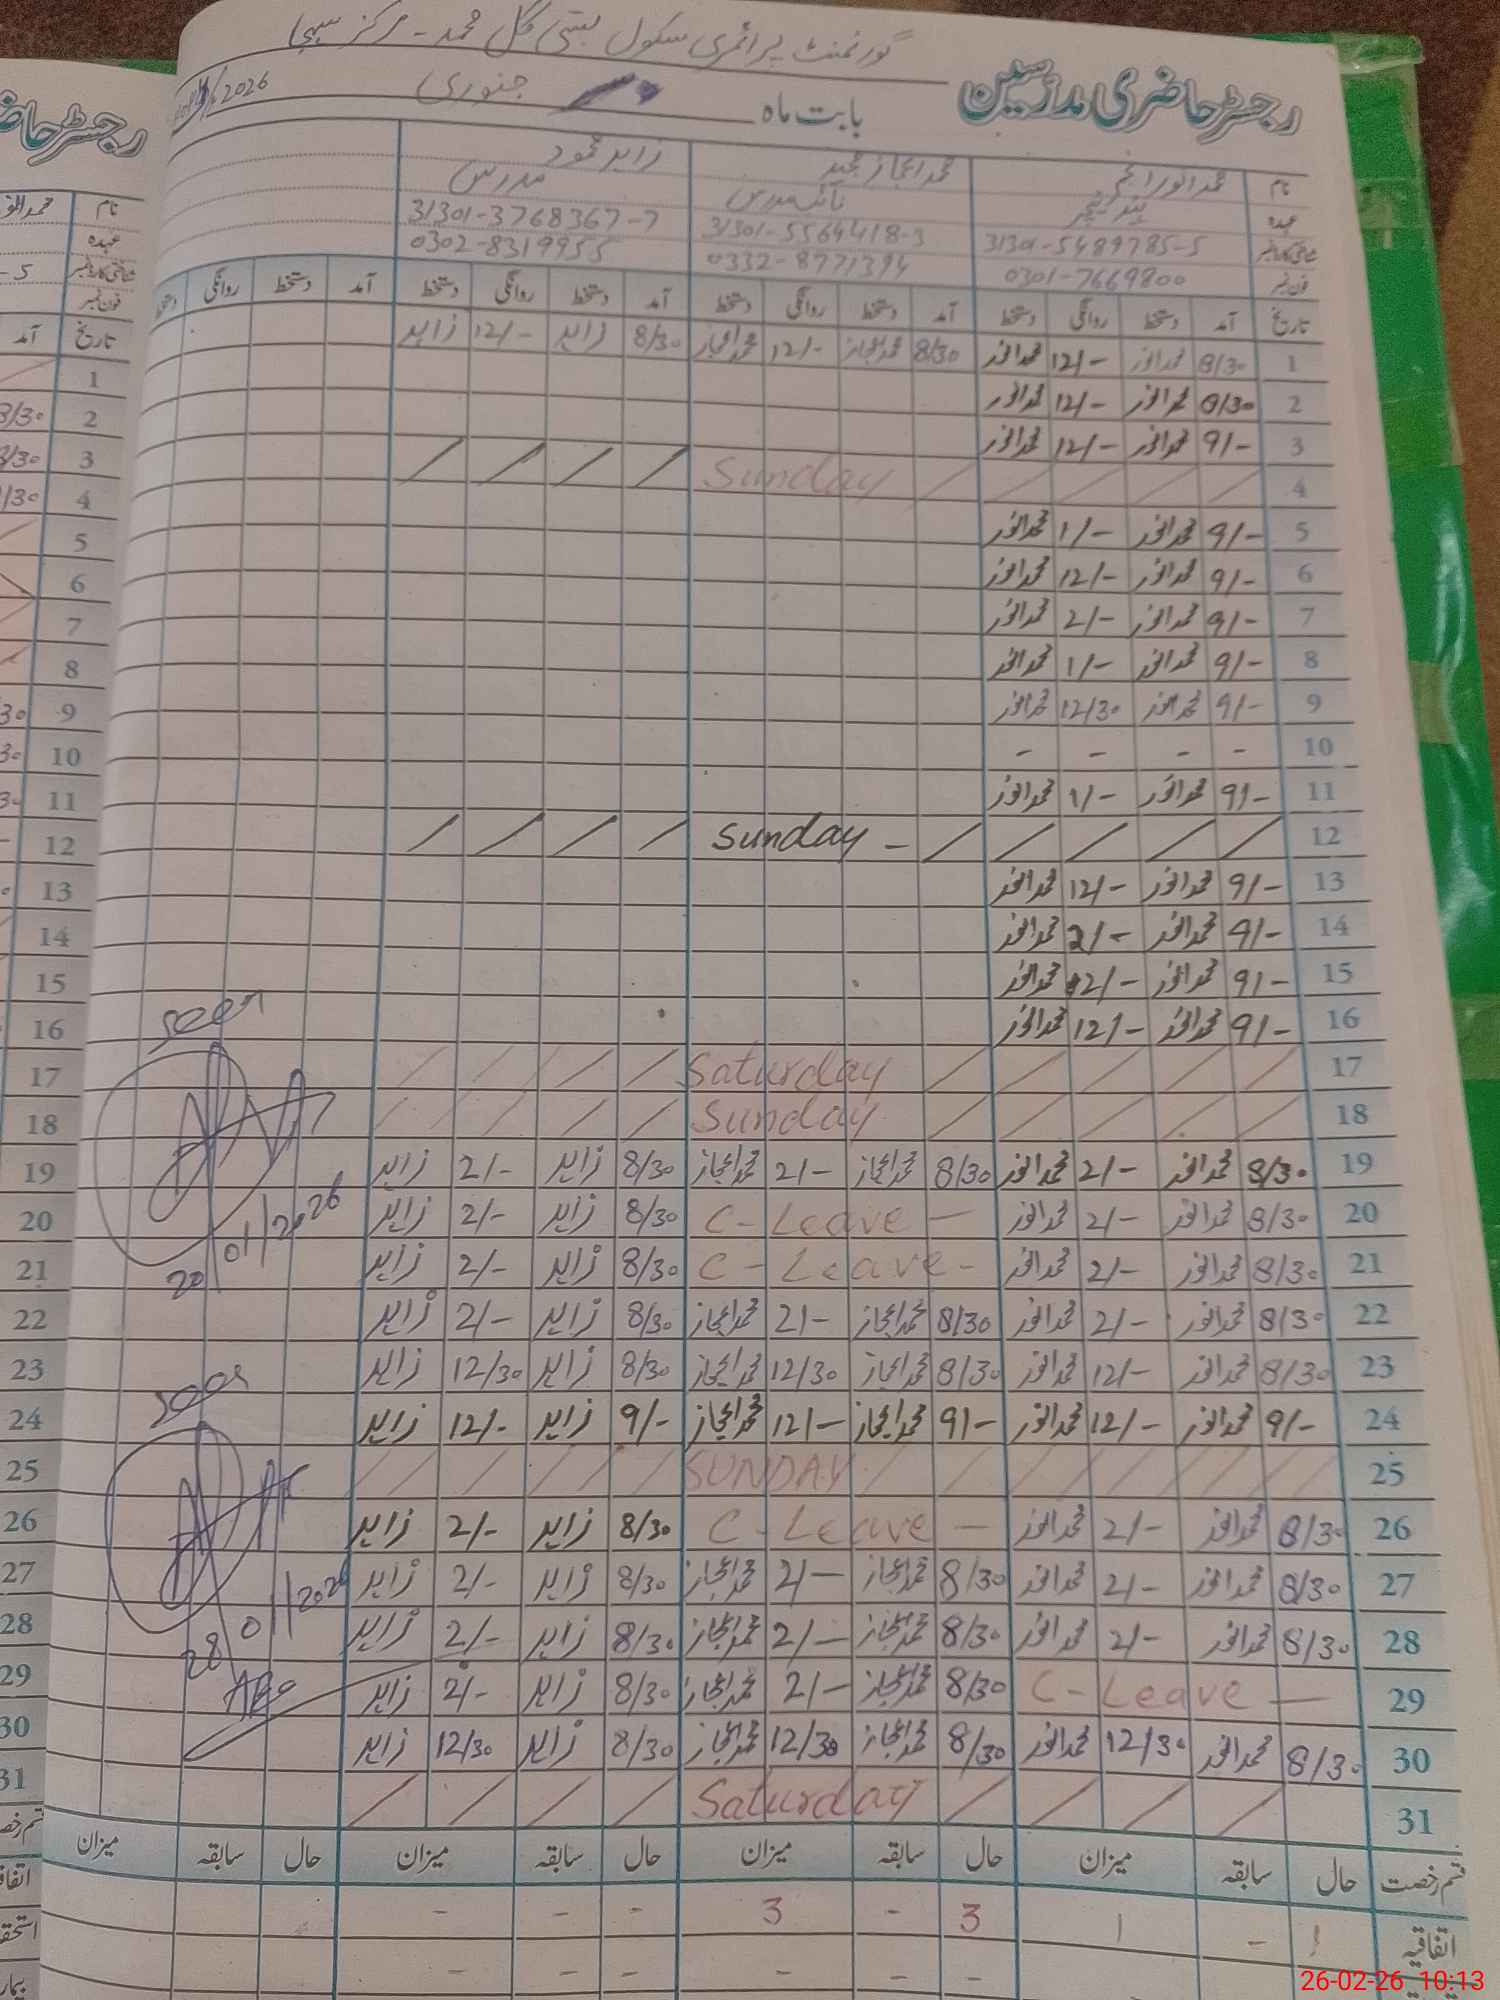 گورنمنٹ پرائمری سکول بستی گل محمد - مرکز
رجسٹر حاضری مدرسین
بابت ماہ جنوری 2026
نام محمد انور انجم محمد اعجاز مجید زاہد محمود
عہدہ ہیڈ ٹیچر مدرس
شناختی کارڈ نمبر 31301-5489785-5 31301-5564418-3 31301-3768367-7
فون نمبر 0301-7669800 0332-8771394 0302-8319955
تاریخ آمد دستخط روانگی دستخط آمد دستخط روانگی دستخط آمد دستخط روانگی دستخط آمد دستخط روانگی دستخط
1 8/30 محمد انور 12/- محمد انور 8/30 محمد اعجاز 12/- محمد اعجاز 8/30 زاہد 12/- زاہد
2 8/30 محمد انور 12/- محمد انور
3 9/- محمد انور 12/- محمد انور
4 Sunday
5 9/- محمد انور 1/- محمد انور
6 9/- محمد انور 12/- محمد انور
7 9/- محمد انور 2/- محمد انور
8 9/- محمد انور 1/- محمد انور
9 9/- محمد انور 12/30 محمد انور
10 - - - -
11 9/- محمد انور 1/- محمد انور
12 Sunday -
13 9/- محمد انور 12/- محمد انور
14 9/- محمد انور 2/- محمد انور
15 9/- محمد انور 12/- محمد انور
16 9/- محمد انور 12/- محمد انور
seen
17 Saturday
18 Sunday
19 8/30 محمد انور 2/- محمد انور 8/30 محمد اعجاز 2/- محمد اعجاز 8/30 زاہد 2/- زاہد
20 8/30 محمد انور 2/- محمد انور C-Leave - 8/30 زاہد 2/- زاہد
20/01/2026
21 8/30 محمد انور 2/- محمد انور C-Leave - 8/30 زاہد 2/- زاہد
22 8/30 محمد انور 2/- محمد انور 8/30 محمد اعجاز 2/- محمد اعجاز 8/30 زاہد 2/- زاہد
23 8/30 محمد انور 12/- محمد انور 8/30 محمد اعجاز 12/30 محمد اعجاز 8/30 زاہد 12/30 زاہد
seen
24 9/- محمد انور 12/- محمد انور 9/- محمد اعجاز 12/- محمد اعجاز 9/- زاہد 12/- زاہد
25 SUNDAY
26 8/30 محمد انور 2/- محمد انور C-Leave - 8/30 زاہد 2/- زاہد
27 8/30 محمد انور 2/- محمد انور 8/30 محمد اعجاز 2/- محمد اعجاز 8/30 زاہد 2/- زاہد
28/01/2026
28 8/30 محمد انور 2/- محمد انور 8/30 محمد اعجاز 2/- محمد اعجاز 8/30 زاہد 2/- زاہد
29 C-Leave - 8/30 محمد اعجاز 2/- محمد اعجاز 8/30 زاہد 2/- زاہد
AEO
30 8/30 محمد انور 12/30 محمد انور 8/30 محمد اعجاز 12/30 محمد اعجاز 8/30 زاہد 12/30 زاہد
31 Saturday
قسم رخصت حال سابقہ میزان حال سابقہ میزان حال سابقہ میزان حال سابقہ میزان
اتفاقیہ 1 - 1 3 - 3 - - -
26-02-26 10:13